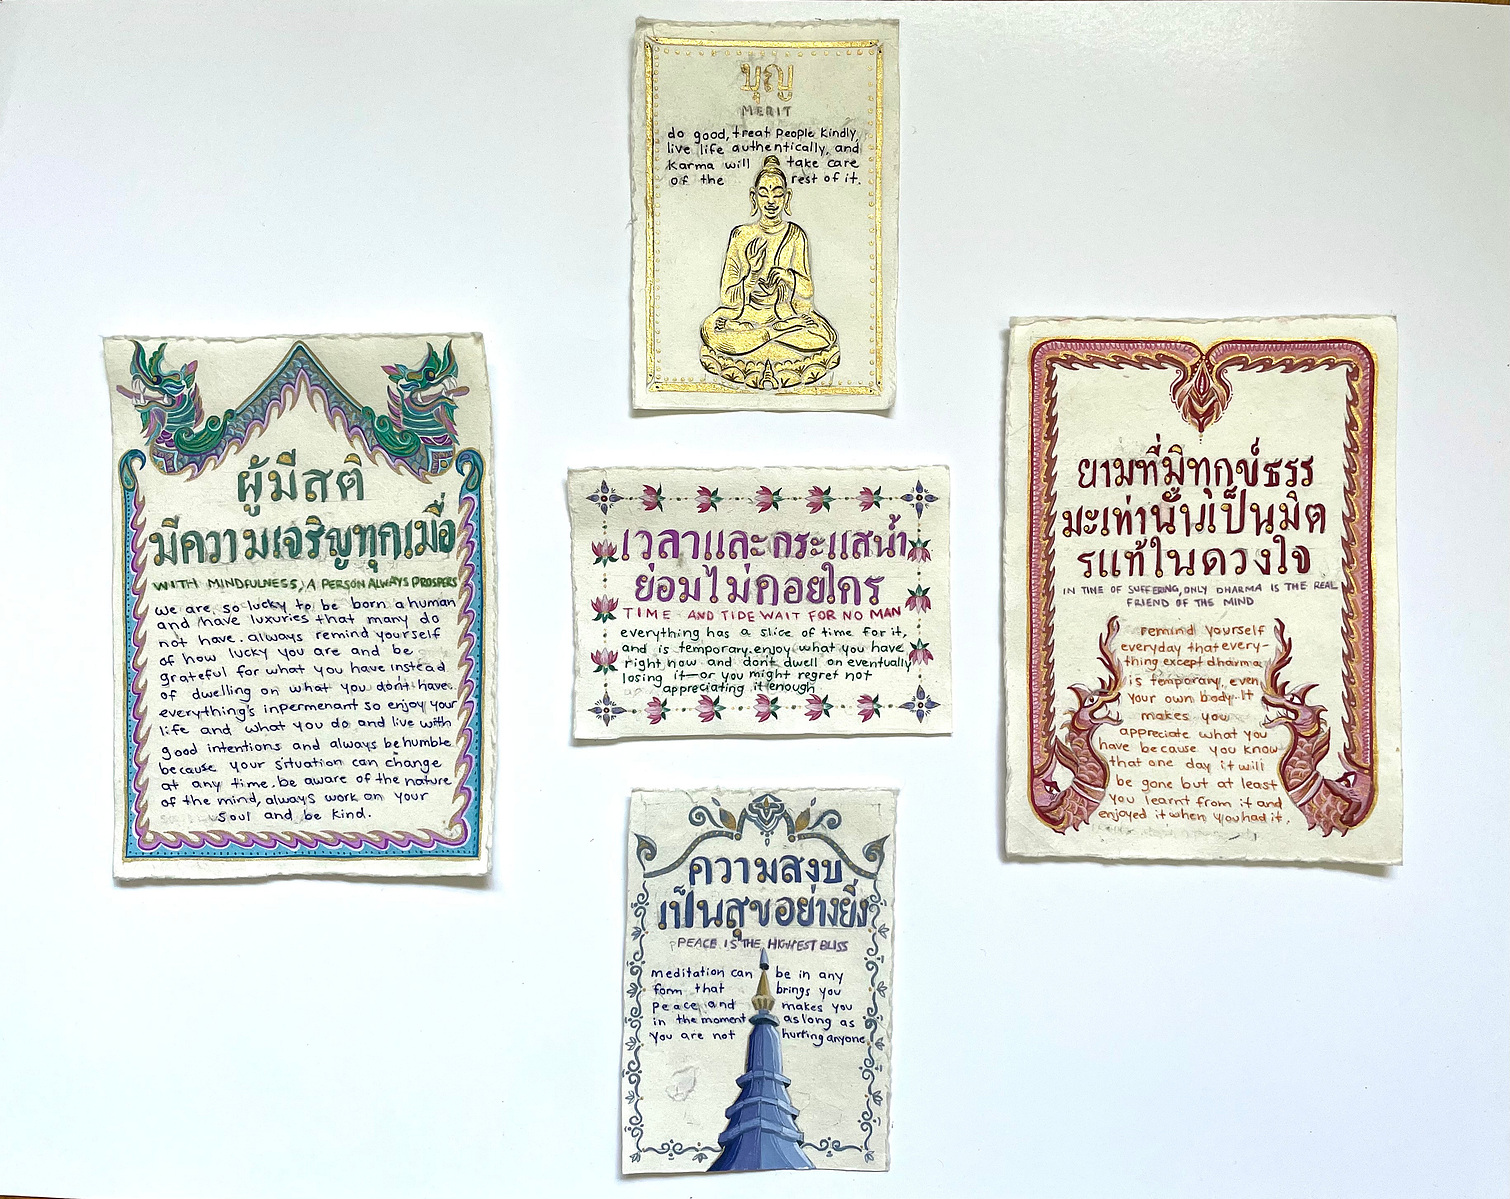 บุญ
MERIT
do good, treat people kindly,
live life authentically, and
karma will take care
of the rest of it.
ผู้มีสติ
มีความเจริญทุกเมื่อ
WITH MINDFULNESS, A PERSON ALWAYS PROSPERS
we are so lucky to be born a human
and have luxuries that many do
not have. always remind yourself
of how lucky you are and be
grateful for what you have instead
of dwelling on what you don't have.
everything's inpermenant so enjoy your
life and what you do and live with
good intentions and always be humble
because your situation can change
at any time. be aware of the nature
of the mind, always work on your
soul and be kind.
เวลาและกระแสน้ำ
ย่อมไม่คอยใคร
TIME AND TIDE WAIT FOR NO MAN
everything has a slice of time for it,
and is temporary. enjoy what you have
right now and don't dwell on eventually
losing it—or you might regret not
appreciating it enough
ยามที่มีทุกข์ธรร
มะเท่านั้นเป็นมิต
รแท้ในดวงใจ
IN TIME OF SUFFERING, ONLY DHARMA IS THE REAL
FRIEND OF THE MIND
remind yourself
everyday that every-
thing except dharma
is temporary, even
your own body. It
makes you
appreciate what you
have because you know
that one day it will
be gone but at least
you learnt from it and
enjoyed it when you had it.
ความสงบ
เป็นสุขอย่างยิ่ง
PEACE IS THE HIGHEST BLISS
meditation can be in any
form that brings you
peace and makes you
in the moment as long as
you are not hurting anyone